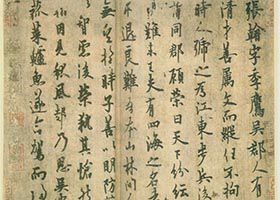 張翰字季鷹吳郡人有
清才善屬文而縱任不拘
時人號之為江東步兵後
謂同郡顧榮曰天下紛紜
難未已夫有四海之名
求退良難吾本山林間人
無望於時子善以明防
以智慮後榮執其愴
翰因見秋風起乃思吳
菰菜鱸魚遂命駕而